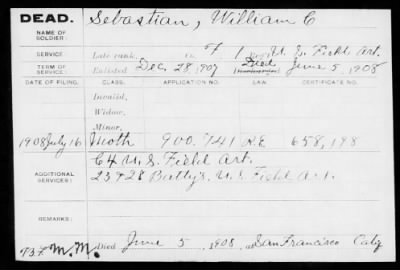 DEAD. Sebastian, William C
NAME OF SOLDIER:
SERVICE: Late rank, Co. F 1 Reg't U. S. Field Art.
TERM OF SERVICE: Enlisted Dec. 28, 1907 Discharged Died June 5, 1908
DATE OF FILING. CLASS. APPLICATION NO. LAW. CERTIFICATE NO.
Invalid,
Widow,
Minor,
1908 July 16 Moth 900.741 R.E 658,198
C4 U. S. Field Art.
ADDITIONAL SERVICES: 23 & 28 Batty's. U. S. Field Art.
REMARKS:
M.M. Died June 5, 1908, at San Francisco Caly